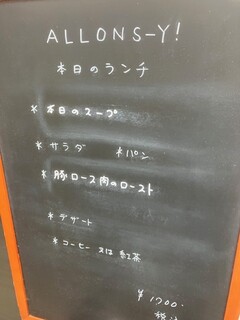 ALLONS-Y!
本日のランチ
* 本日のスープ
* サラダ * パン
* 豚ロース肉のロースト
* デザート
* コーヒー 又は 紅茶
¥1700.
税込